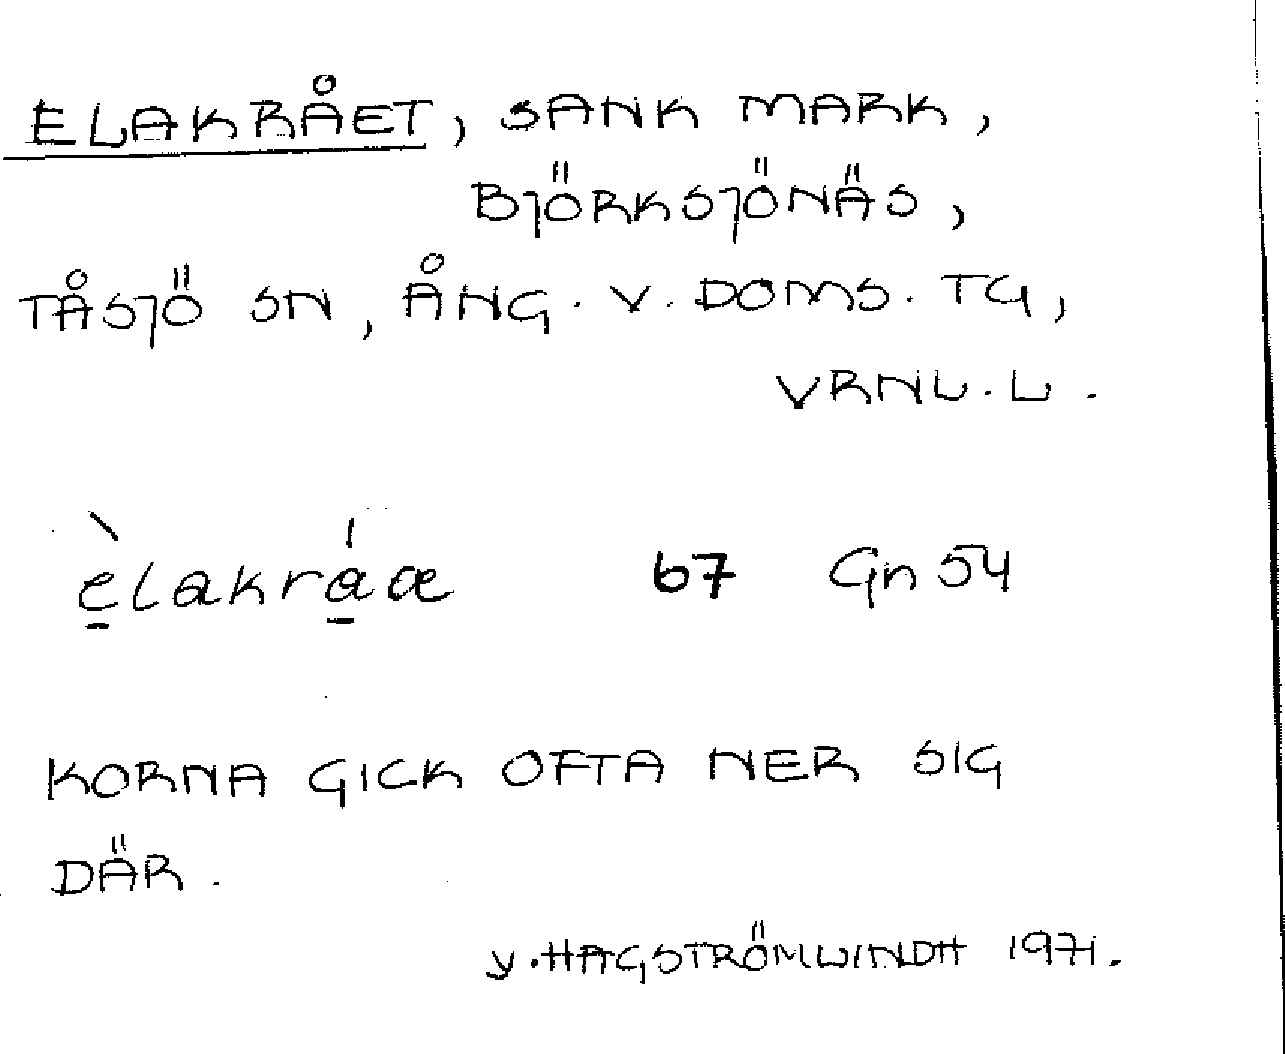 ELAKRÅET, SANK MARK,
BJÖRKSJÖNÄS,
TÅSJÖ SN, ÅNG. V. DOMS. TG,
VRNL. L.
èlakráæ 67 Gn 54
KORNA GICK OFTA NER SIG
DÄR.
Y. HAGSTRÖMLINDH 1971.